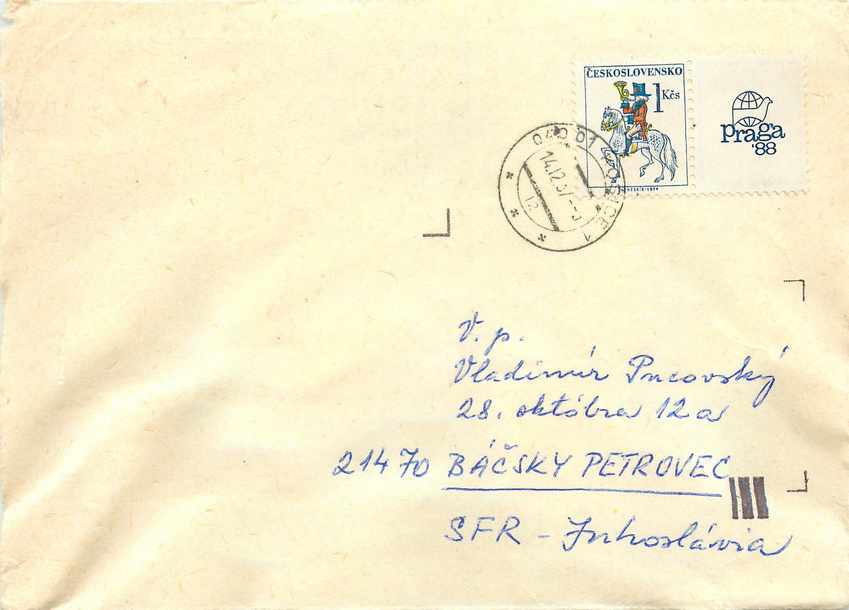 ČESKOSLOVENSKO
1 Kčs
praga
'88
040 01 KOŠICE 1
14.12.87
12
V. p.
Vladimír Pucovský
28. októbra 12a
21470 BÁČSKY PETROVEC
SFR - Juhoslávia